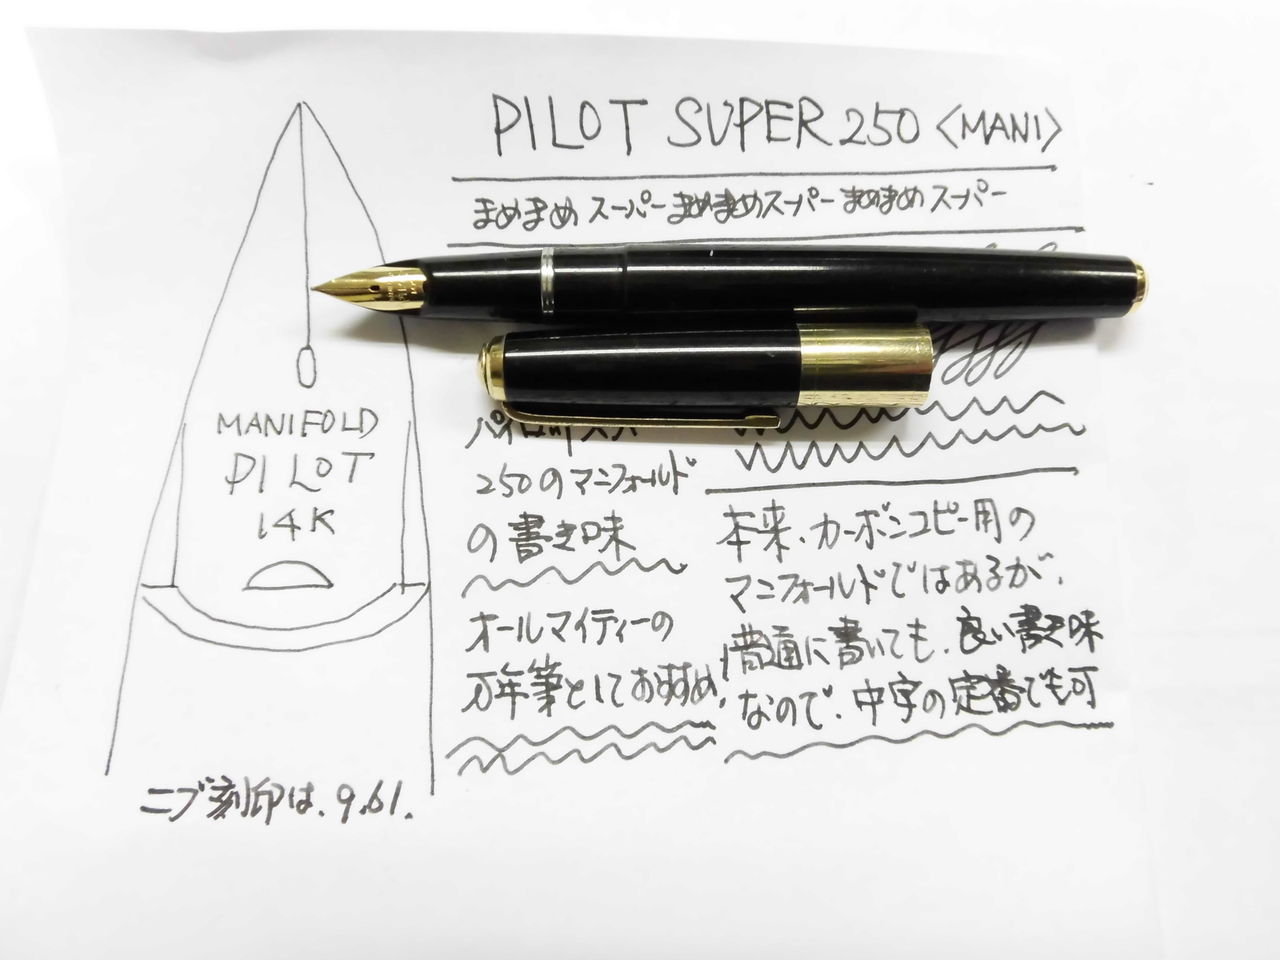 PILOT SUPER 250 〈MANI〉
まめまめ スーパー まめまめスーパー まめまめ スーパー
MANIFOLD
PILOT
14K
パイロットスーパー
250のマニフォールド
の書き味
オールマイティーの
万年筆としておすすめ!
本来、カーボンコピー用の
マニフォールドではあるが、
普通に書いても、良い書き味
なので、中字の定番でも可
ニブ刻印は、9.61.